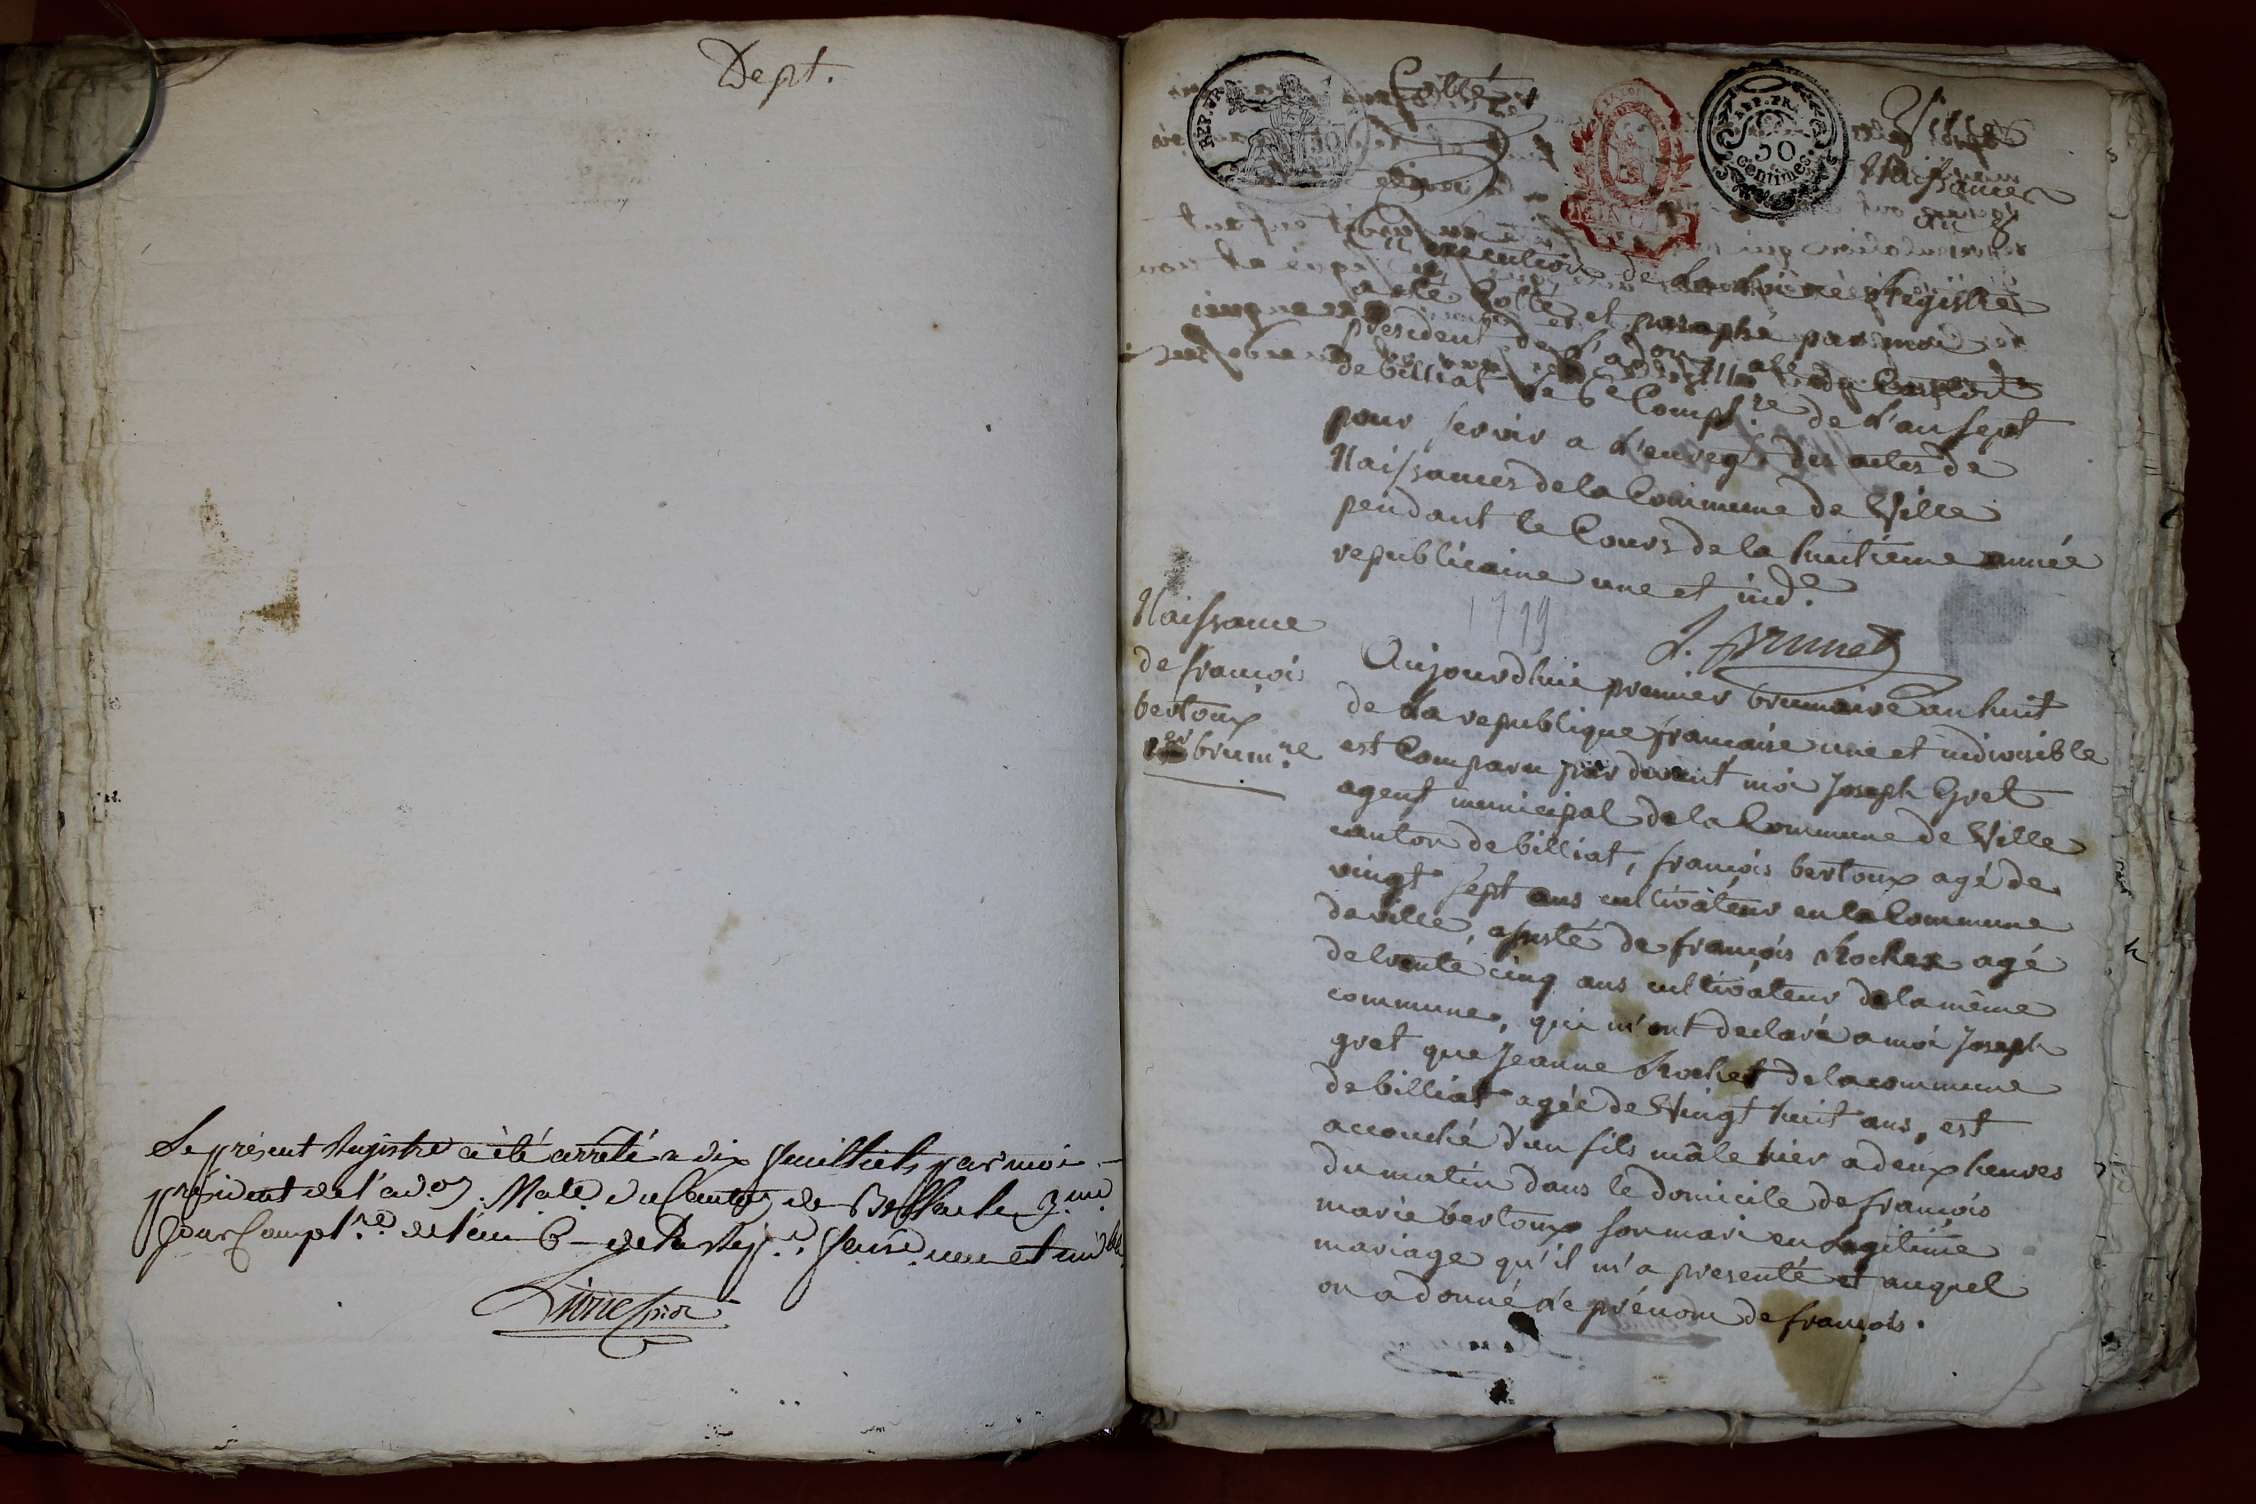 Dept.
Le présent Registre a été arrêté a dix feuillets par moi
président de l'adon. Male. du Canton de le 3.me
jour Compl.re de l'an 6 de la Rep.e franç. une et ind.ble
Cotté
REP. FRA
50
centimes
Ville
Naissances
an 8
En execution de la loi ce Registre
a eté Cotté et paraphé par moi
president de l'adon male du Canton
de billiat le 6e Compl.re de l'an sept
pour servir a l'enreg.t des actes de
Naissances de la Commune de Ville
pendant le Cours de la huitieme année
republicaine une et ind.e
1799
J. Brunet
Naissance
de françoi
bertoux
1er brum.re
Aujourd'hui premier brumaire an huit
de la republique francaise une et indivisible
est Comparu par devant moi Joseph Gret
agent municipal de la Commune de Ville
canton de billiat, françois bertoux agé de
vingt sept ans cultivateur en la Commune
de ville, assisté de françois Rochex agé
de trente cinq ans cultivateur de la même
commune, qui m'ont declaré a moi Joseph
gret que Jeanne Rochet de la commune
de billiat agée de Vingt huit ans, est
accouché d'un fils mâle hier a deux heures
du matin dans le domicile de françois
marie bertoux son mari en Legitime
mariage qu'il m'a presenté et auquel
on a donné le prénom de françois.